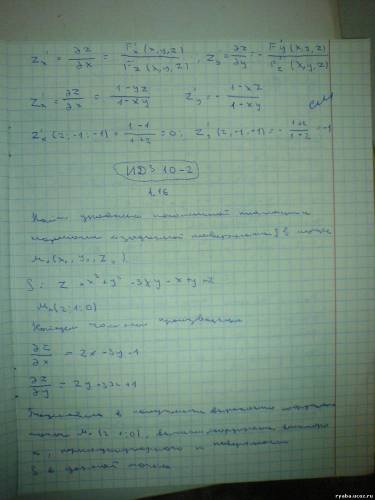 z'x = ∂z/∂x = F'x (x,y,z) / F'z (x,y,z), z'y = ∂z/∂y = - F'y (x,y,z) / F'z (x,y,z)
z'x = ∂z/∂x = 1-yz / 1-xy z'y = - 1-xz / 1-xy
z'x (2,-1,-1) = 1-1 / 1+2 = 0; z'y (2,-1,+1) = - 1+2 / 1+2 = -1
ИДЗ 10-2
1.16
Найти уравнение касательной плоскости и
нормали к заданной поверхности S в точке
M₀(x₀, y₀, z₀).
S: z = x² + y² - 3xy - x + y + 2
M₀(2;1;0)
Находим частные производные
∂z/∂x = 2x - 3y - 1
∂z/∂y = 2y - 3x + 1
Подставляя в полученные выражения координаты
точки M₀(2;1;0), координаты вектора
S в данной точке
ryaba.ucoz.ru